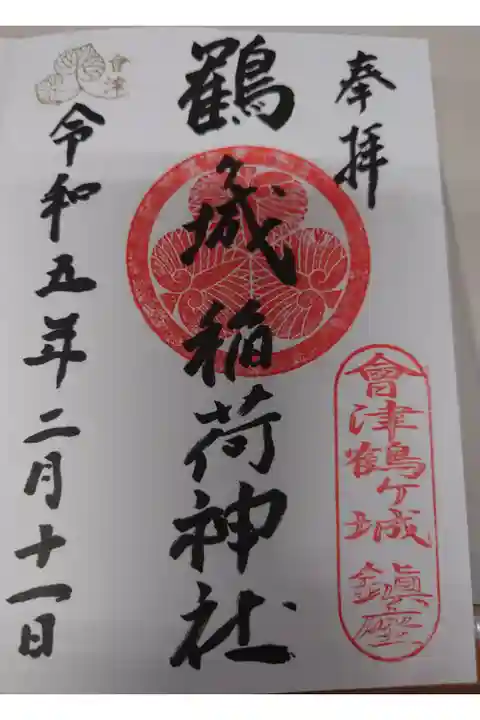 奉拝
會津鶴ヶ城 鎮座
鶴ヶ城稲荷神社
會津
令和五年二月十一日